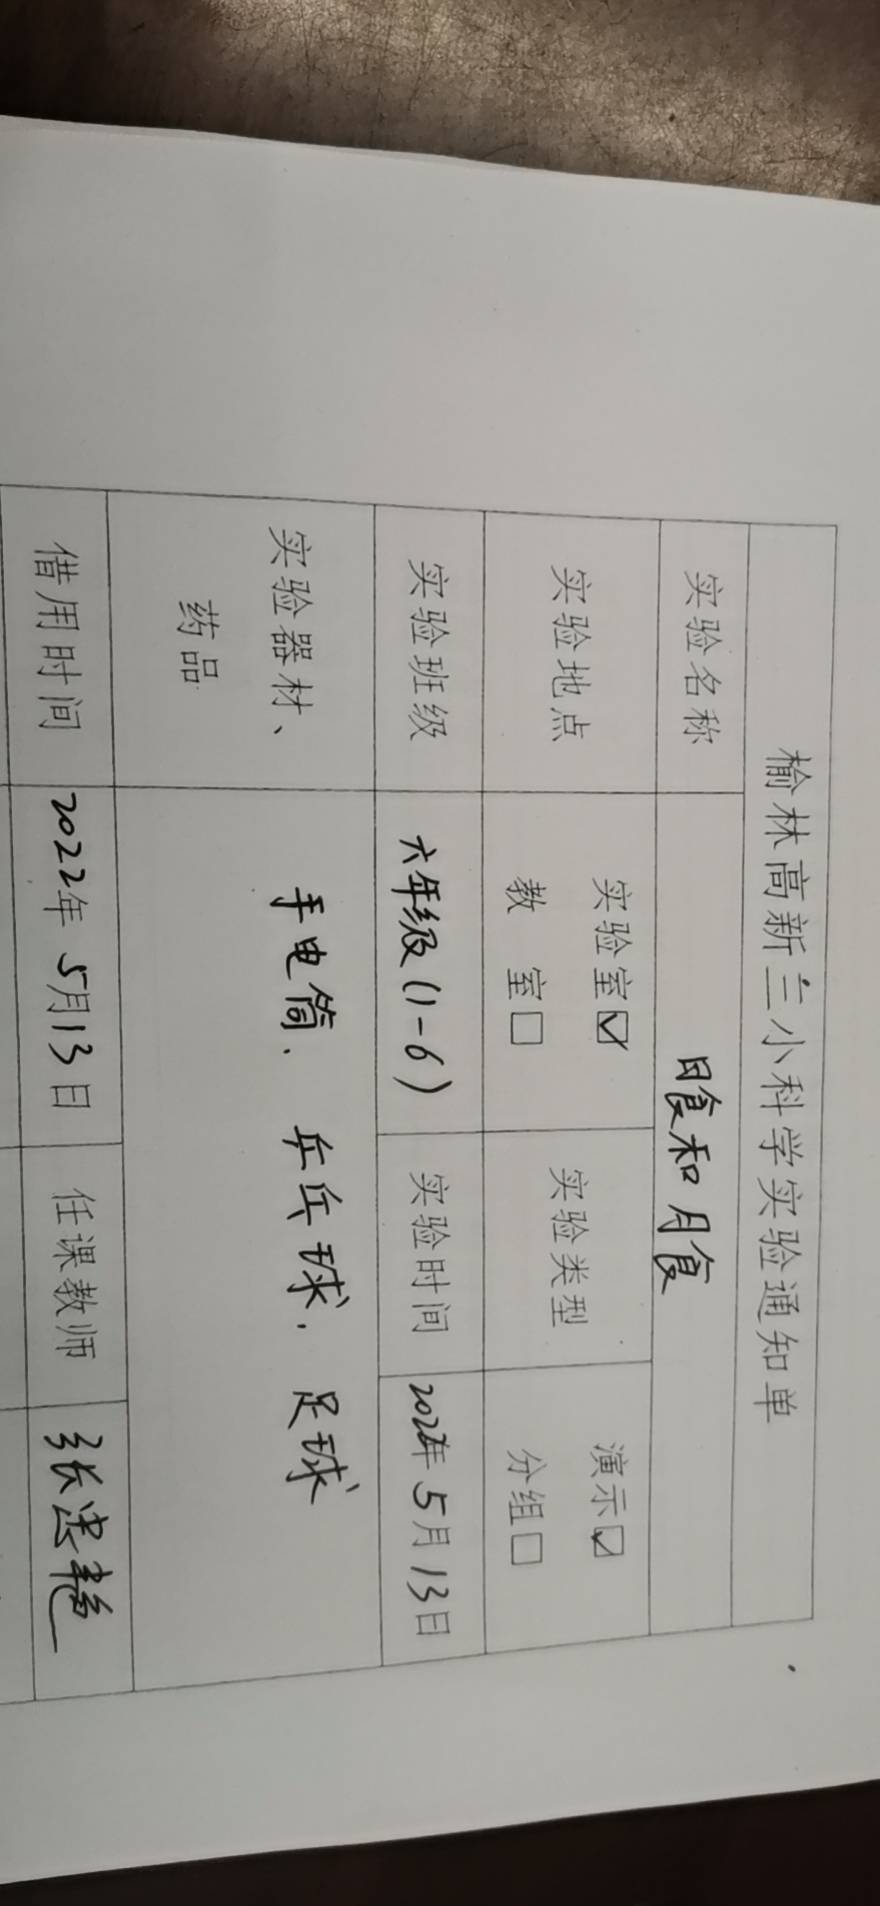 榆林高新三小科学实验通知单
实验名称 日食和月食
实验地点 实验室☑ 教 室□ 实验类型 演示☑ 分组□
实验班级 六年级(1-6) 实验时间 2022年5月13日
实验器材、药品 手电筒、乒乓球、足球
借用时间 2022年5月13日 任课教师 张